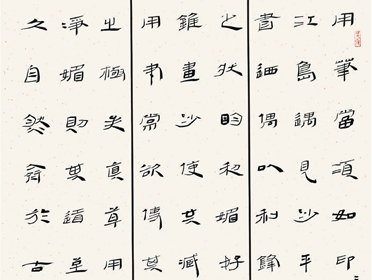 用筆當須如印
江島遇見沙平
書迺偶以利鋒
之狀明利媚好
錐畫沙使其藏
用筆常欲傳其
之極矣真草用
淨媚則其道至
久自然齊於古